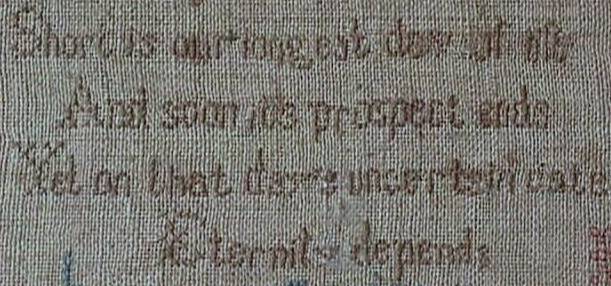 Short is our longest day of life
And soon its prospect ends
Yet on that days uncertain date
Eternity depends